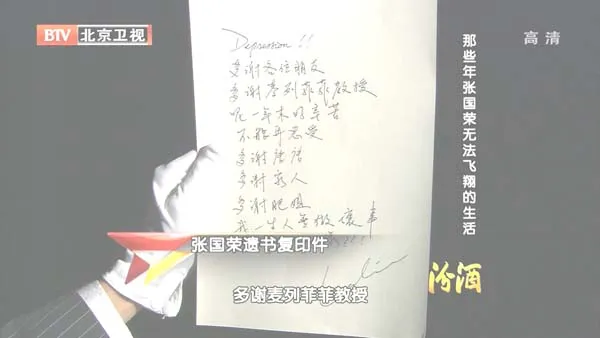 BTV 北京卫视
高清
那些年张国荣无法飞翔的生活
Depression !!
多謝各位朋友
多謝麥列菲菲教授
呢一年來好辛苦
不能再忍受
多謝唐唐
多謝家人
多謝肥姐
我一生人無做壞事
张国荣遗书复印件
汾酒
多谢麦列菲菲教授